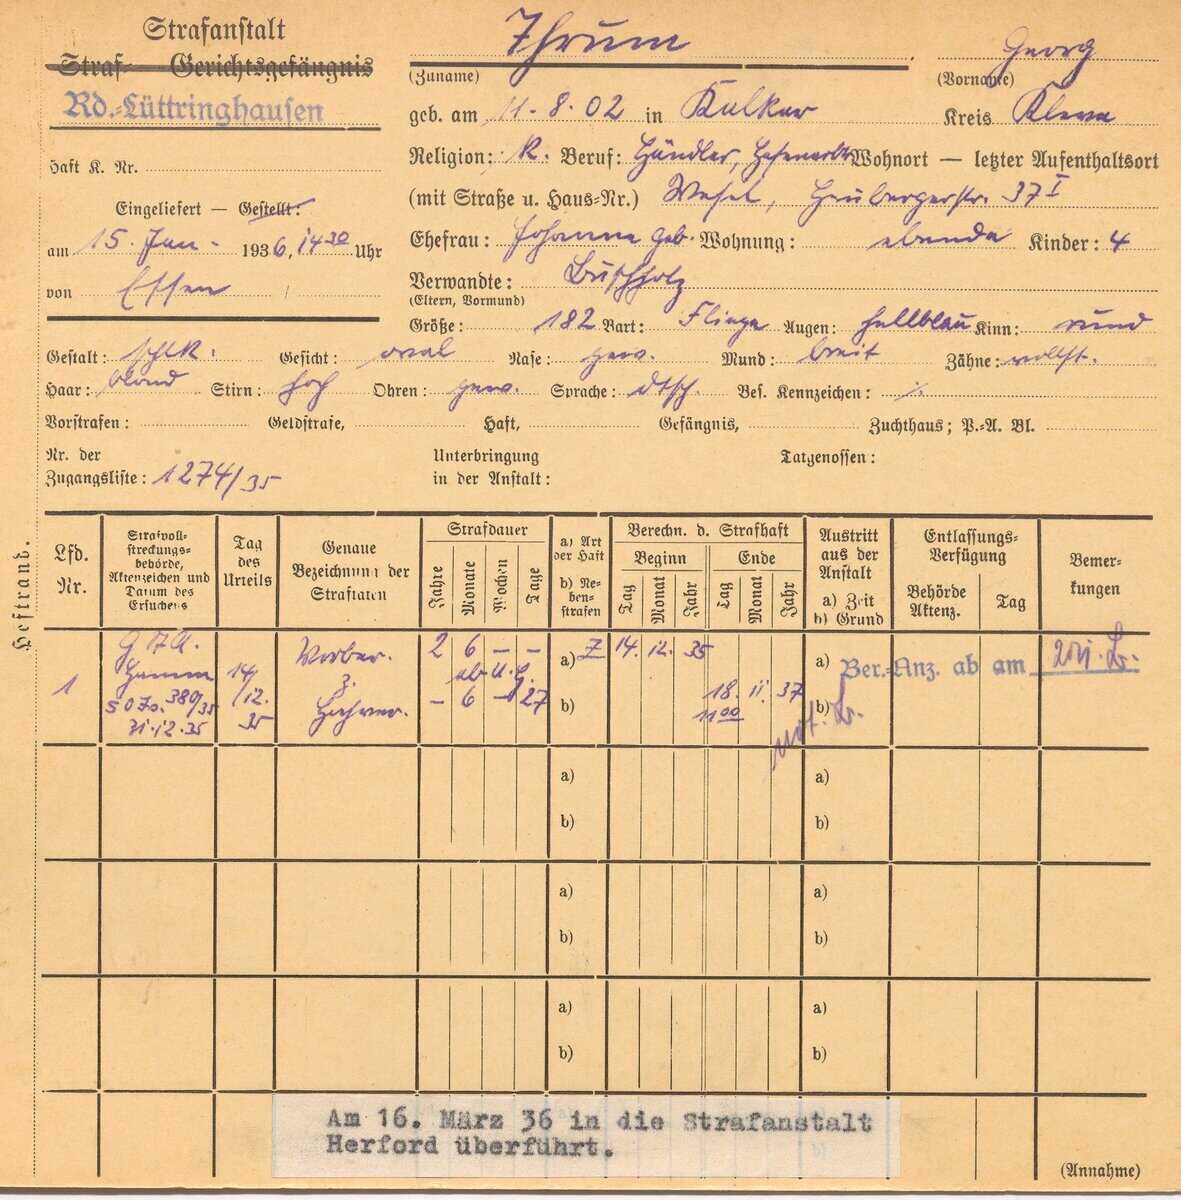 Strafanstalt
Straf- Gerichtsgefängnis
Rd.-Lüttringhausen
Haft K. Nr.
Eingeliefert — Gestellt:
am 15. Jan. 1936, 14 30 Uhr
von Essen
Thrum Georg
(Zuname) (Vorname)
geb. am 11.8.02 in Kalkar Kreis Kleve
Religion: K. Beruf: Händler, Wohnort — letzter Aufenthaltsort
(mit Straße u. Haus-Nr.) Wesel, 37 I
Ehefrau: Johanna geb. Wohnung: ebenda Kinder: 4
Verwandte: Buschholz
(Eltern, Vormund)
Größe: 182 Bart: Fliege Augen: hellblau Kinn: rund
Gestalt: schlk. Gesicht: oval Nase: gew. Mund: breit Zähne: vollst.
Haar: blond Stirn: hoch Ohren: gew. Sprache: dtsch. Bes. Kennzeichen: ⁒
Vorstrafen: Geldstrafe, Haft, Gefängnis, Zuchthaus; P.-A. Bl.
Nr. der
Zugangsliste: 1274/35
Unterbringung
in der Anstalt:
Tatgenossen:
Heftrand.
Lfd.
Nr.
Strafvoll-
streckungs-
behörde,
Aktenzeichen und
Datum des
Ersuchens
Tag
des
Urteils
Genaue
Bezeichnung der
Straftaten
Strafdauer
Jahre Monate Wochen Tage
a) Art
der Haft
b) Ne-
ben-
strafen
Berechn. d. Strafhaft
Beginn Ende
Tag Monat Jahr Tag Monat Jahr
Austritt
aus der
Anstalt
a) Zeit
b) Grund
Entlassungs-
Verfügung
Behörde
Aktenz.
Tag
Bemer-
kungen
1
G St A.
Hamm
5 O Js. 380/35
31.12.35
14/
12.
35
Vorber.
z.
Hochver.
2 6 — —
ab U. H.
— 6 — 27
a) Z
b)
14. 12. 35
18. 11. 37
11 00
a) Ber.-Anz. ab am
b)
a)
b)
a)
b)
a)
b)
a)
b)
a)
b)
a)
b)
Am 16. März 36 in die Strafanstalt
Herford überführt.
(Annahme)